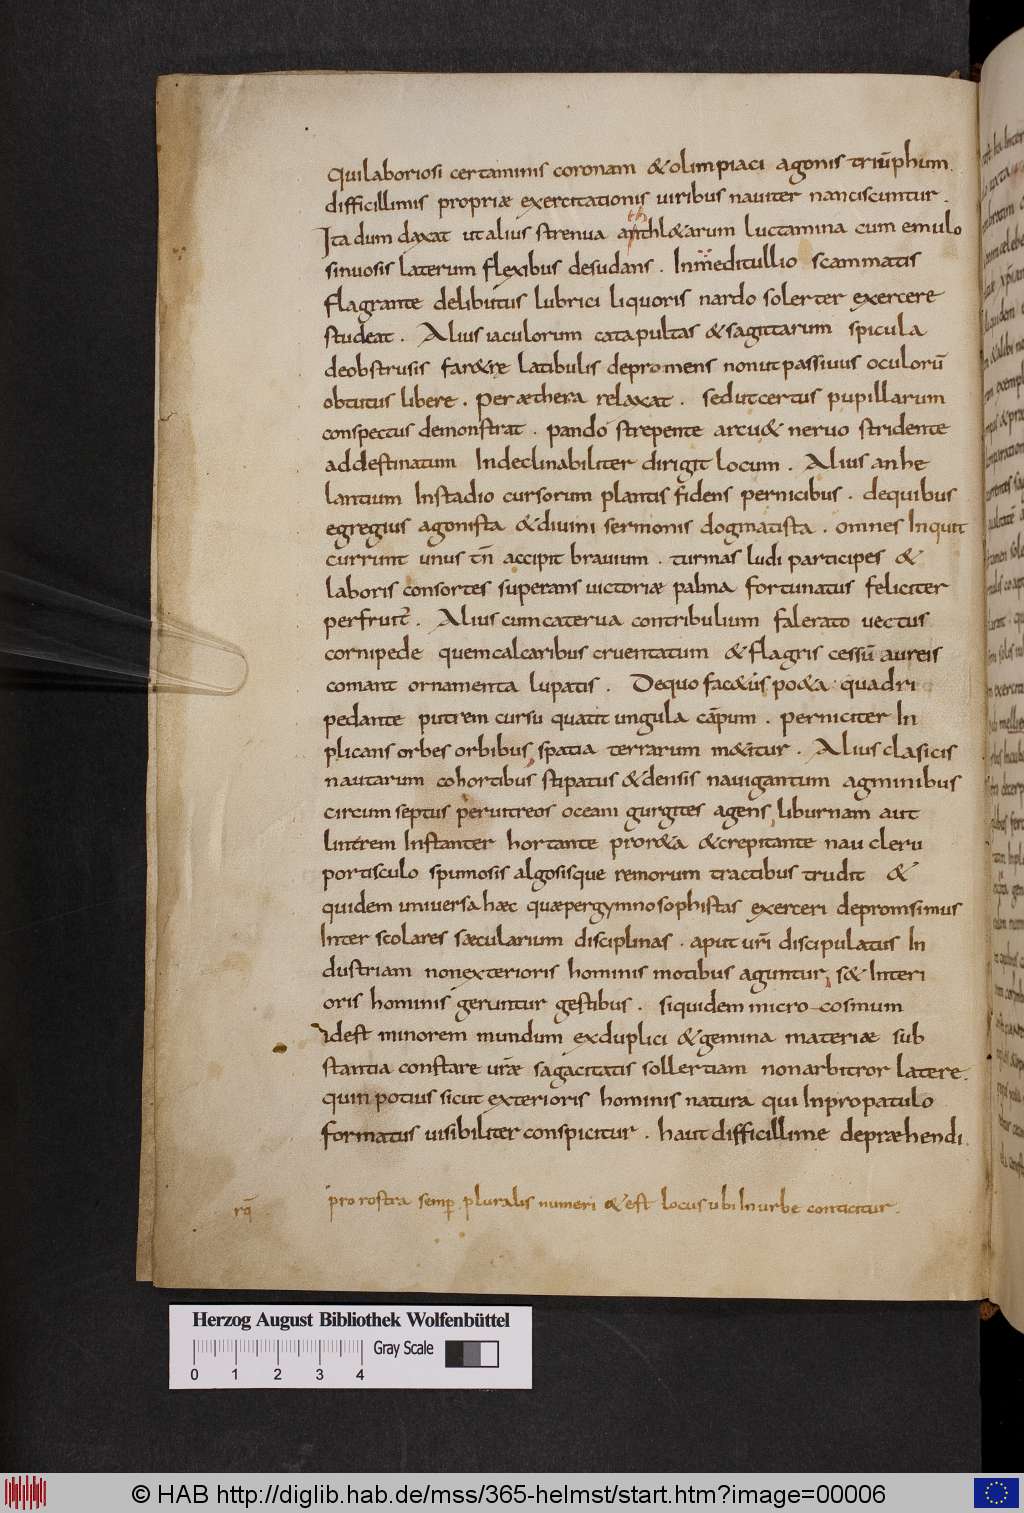 Qui laboriosi certaminis coronam & olimpiaci agonis triūphum
difficillimis propriæ exercitationis uiribus nauiter nanciscuntur.
Ita dum daxat ut alius strenua anthl&arum luctamina cum emulo
th
sinuosis laterum flexibus desudans. In meditullio scammatis
flagrante delibutus lubrici liquoris nardo solerter exercere
studeat. Alius iaculorum catapultas & sagittarum spicula
de obstrusis far&rę latibulis depromens non ut passiuus oculorū
obtutus libere. Per æthera relaxat. sed ut certus pupillarum
conspectus demonstrat. pando strepente arcu & neruo stridente
ad destinatum Indeclinabiliter dirigit locum. Alius anhe
lantium In stadio cursorum plantis fidens pernicibus. de quibus
egregius agonista & diuini sermonis dogmatista. omnes Inquit
currunt unus tn̄ accipit brauium. turmas ludi participes &
laboris consortes superans uictoriæ palma fortunatus feliciter
perfruit̄. Alius cum caterua contribulium falerato uectus
cornipede quem calcaribus cruentatum & flagris cessū aureis
comant ornamenta lupatis. De quo fac&us po&a quadri
pedante putrem cursu quatit ungula cāpum. perniciter In
plicans orbes orbibus spatia terrarum m&itur. Alius clasicis
nautarum cohortibus stipatus & densis nauigantum agminibus
circumseptus per uitreos oceani gurgites agens liburnam aut
lintrem Instanter hortante pror&a & crepitante naucleru
portisculo spumosis algosisque remorum tractibus trudit &
quidem uniuersa hæc quæ per gymnosophistas exerceri depromsimus
Inter scolares sæcularium disciplinas. aput ur̄i discipulatus In
dustriam non exterioris hominis motibus aguntur, s& Interi
oris hominis geruntur gestibus. siquidem microcosmum
idest minorem mundum ex duplici & gemina materiæ sub
stantia constare ur̄æ sagacitatis sollertiam non arbitror latere.
quin potius sicut exterioris hominis natura qui In propatulo
formatus uisibiliter conspicitur. haut difficillime depræhendi
rq̄
pro rostra semp̄ pluralis numeri & est locus ubi In urbe conticitur.
Herzog August Bibliothek Wolfenbüttel
Gray Scale
0 1 2 3 4
© HAB http://diglib.hab.de/mss/365-helmst/start.htm?image=00006